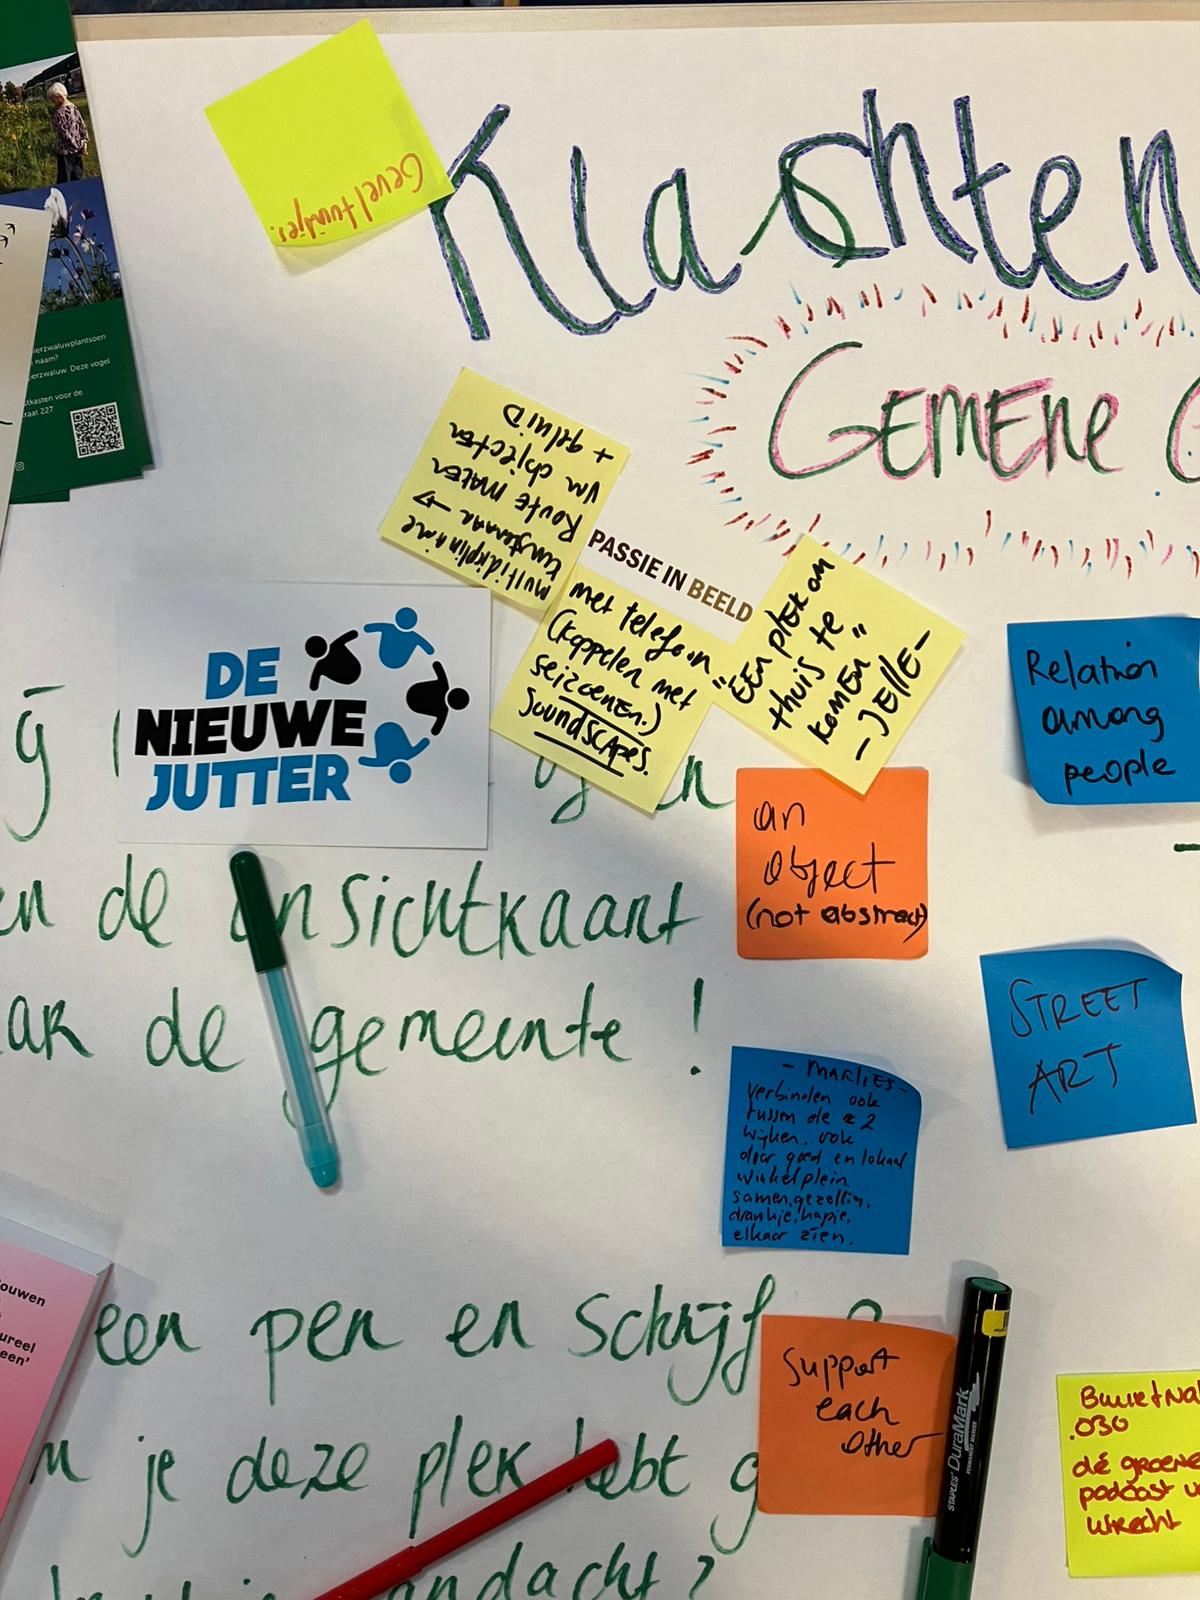 Geveltuintjes.
Klachten
GEMENE G
multidisiplinaire
kunstenaar →
Route maken
vm objecten
+ geluid
PASSIE IN BEELD
met telefoon
(koppelen met
seizoenen.)
Soundscapes.
"EEN plek om
thuis te
komen"
- JELLE -
DE
NIEUWE
JUTTER
Relation
among
people
an
object
(not abstract)
en de ansichtkaart
de gemeente!
STREET
ART
- MARLIES -
verbinden ook
tussen de 2
wijken. ook
door goed en lokaal
winkelplein.
samen, gezellig,
drankje, hapje,
elkaar zien.
een pen en schrijf
support
each
other
je deze plek hebt g
andacht?
STAPLES DuraMark
PERMANENT MARKER
BuurtNat
.030
dé groene
podcast v
Utrecht
ierzwaluwplantsoen
naam?
ierzwaluw. Deze vogel
stkasten voor de
raat 227
ouwen
ureel
een'